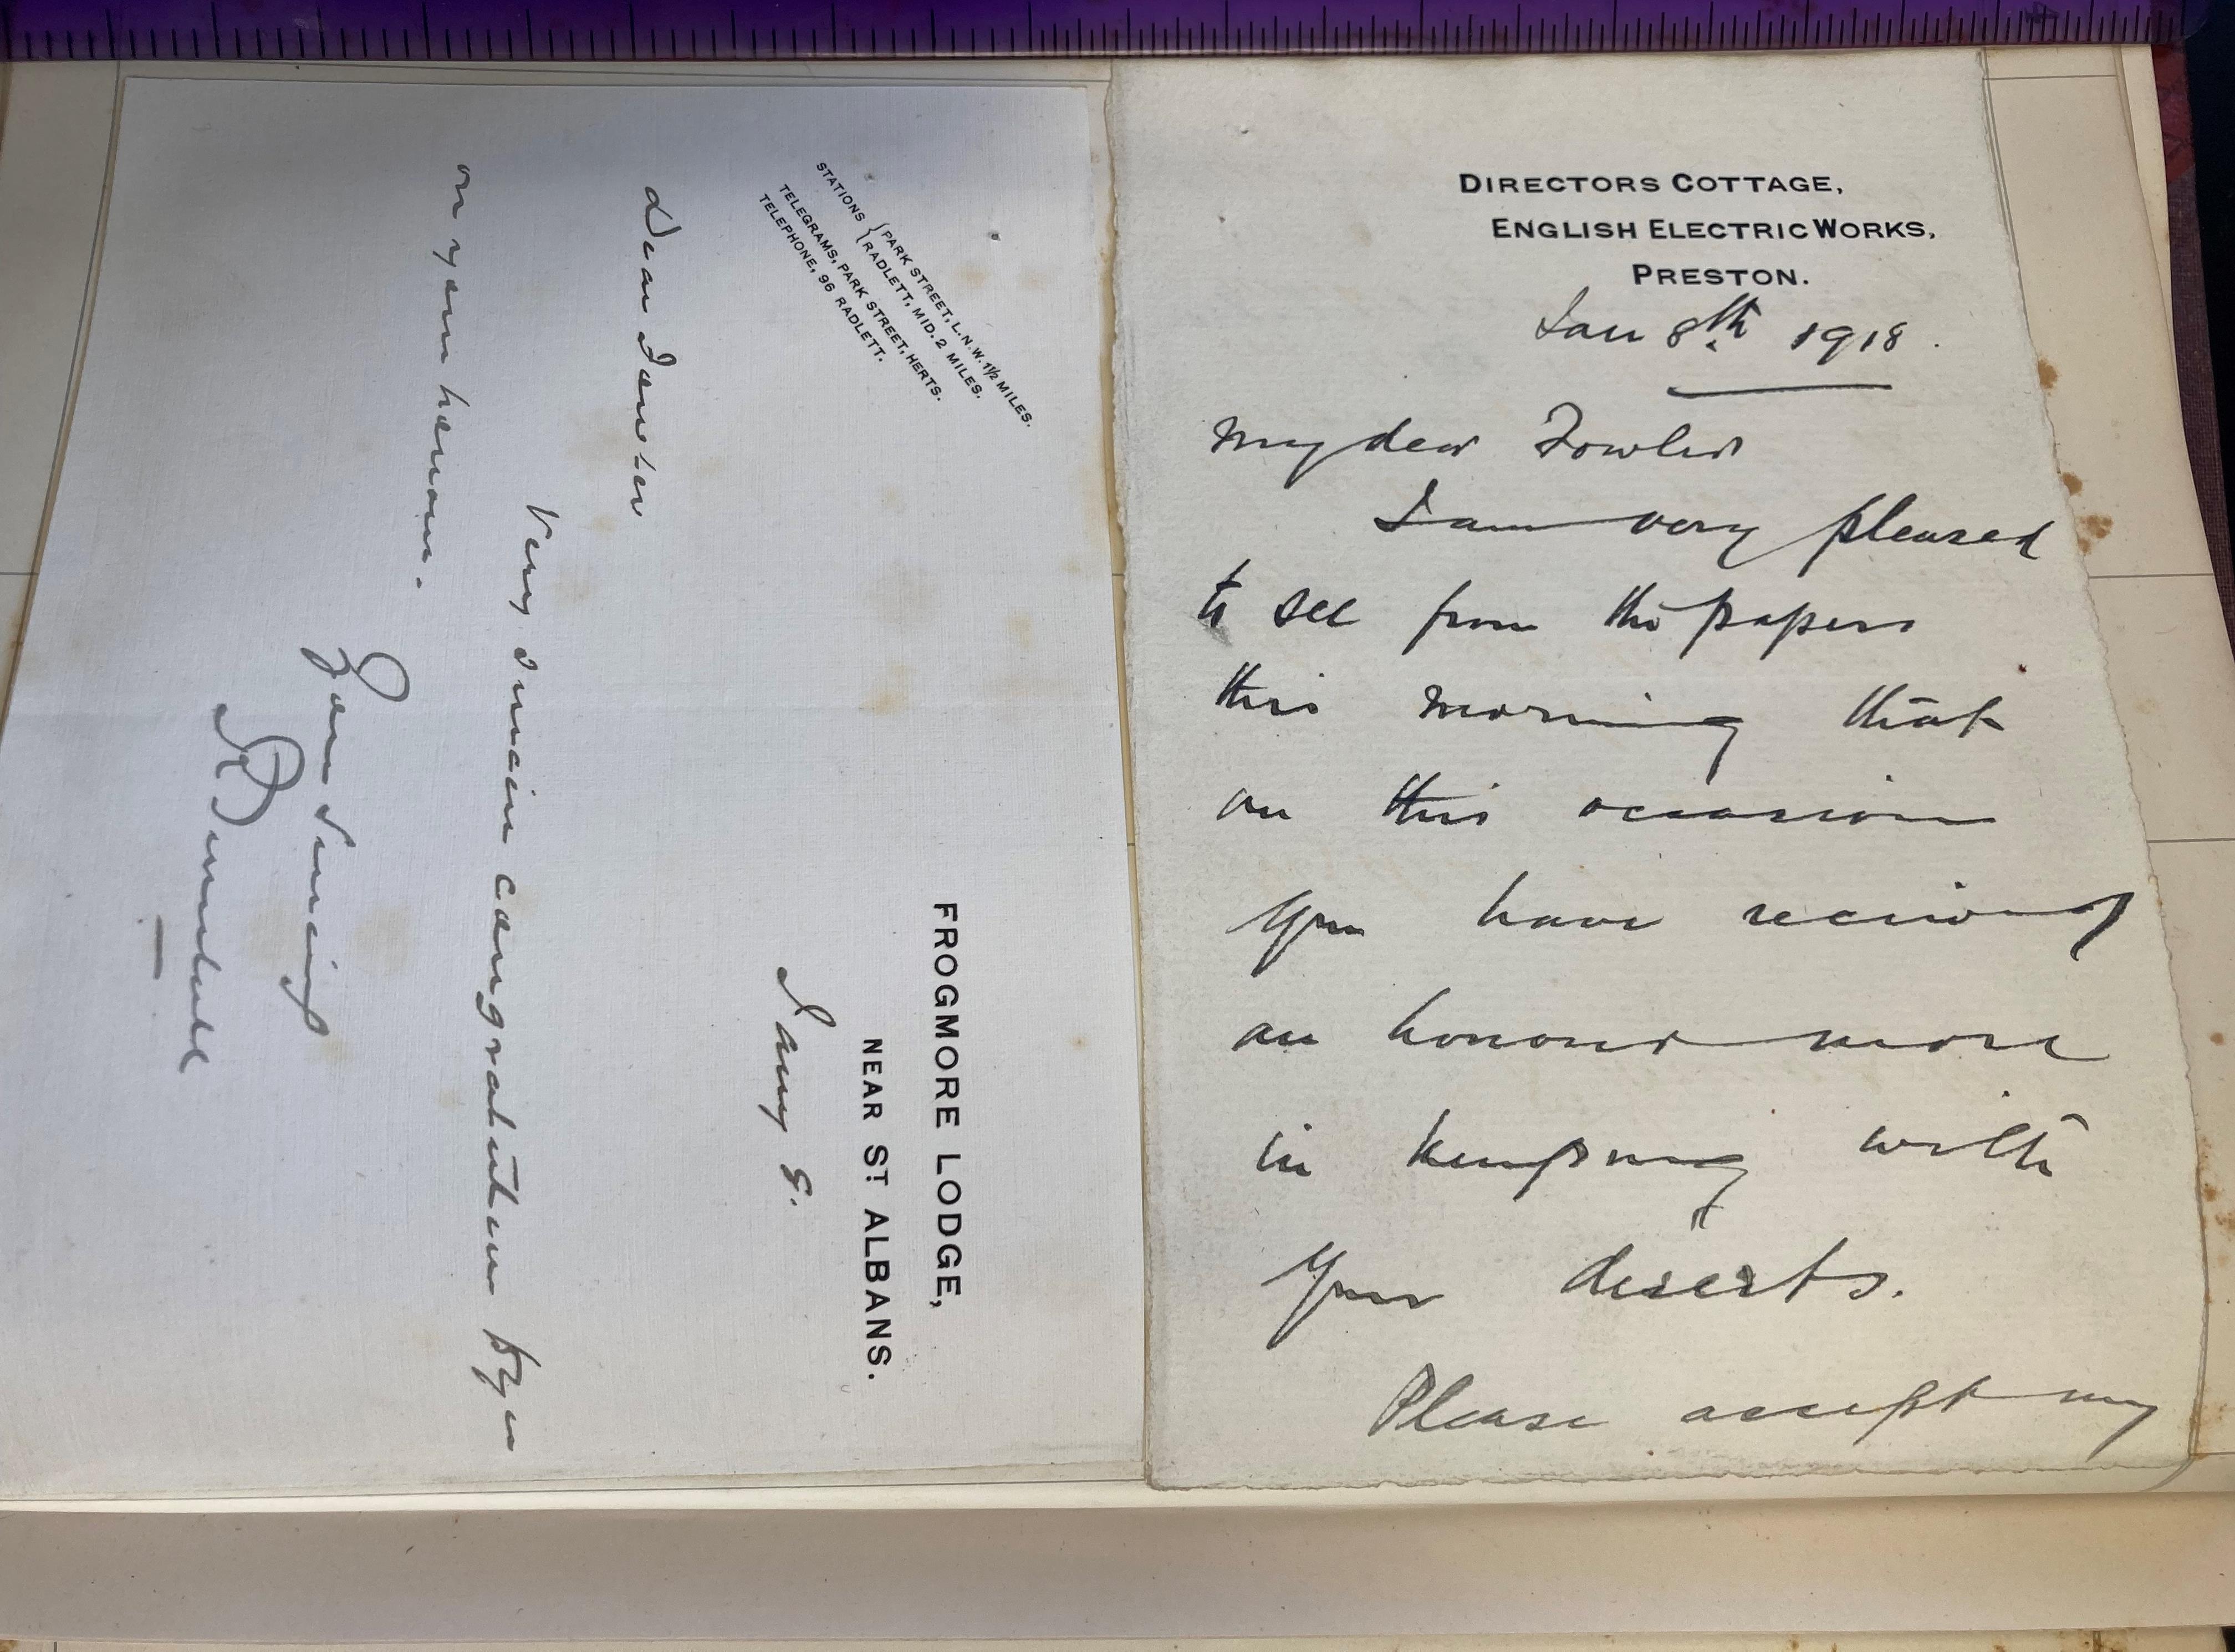 STATIONS { PARK STREET, L.N.W. 1½ MILES.
RADLETT, MID. 2 MILES.
TELEGRAMS, PARK STREET, HERTS.
TELEPHONE, 96 RADLETT.
FROGMORE LODGE,
NEAR ST ALBANS.
Jany 8.
Dear Fowler
Very sincere congratulations to you
on your honour.
Yours Sincerely
DIRECTORS COTTAGE,
ENGLISH ELECTRIC WORKS,
PRESTON.
Jan 8th 1918.
My dear Fowler
I am very pleased
to see from the papers
this morning that
on this occasion
you have received
an honour more
in keeping with
your deserts.
Please accept my